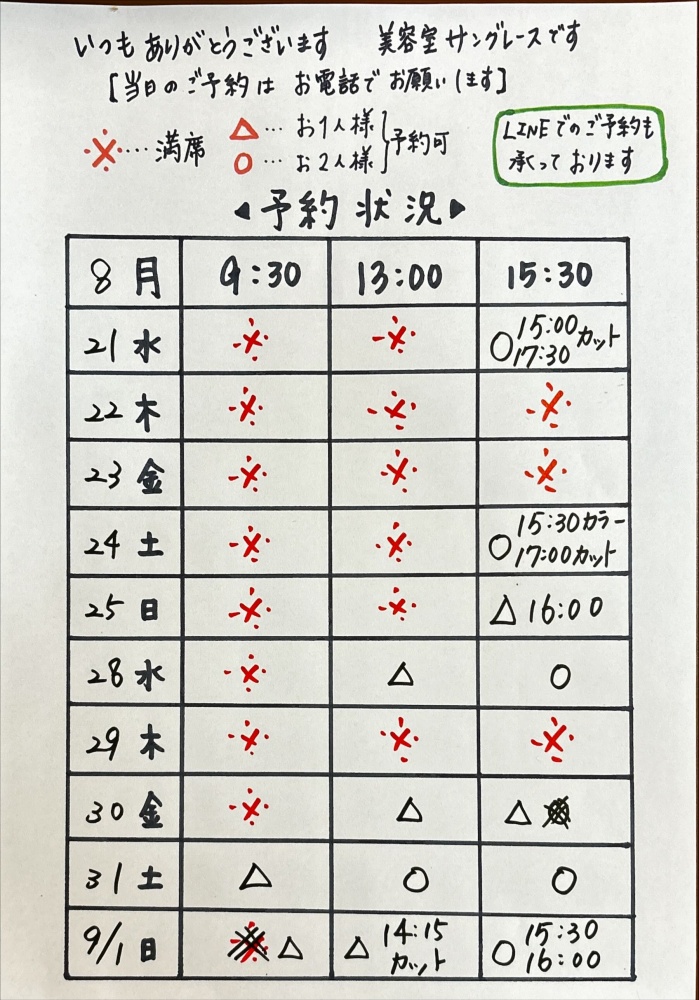 いつもありがとうございます 美容室サングレースです
[当日のご予約は お電話でお願いします]
※…満席
△…お1人様
○…お2人様
予約可
LINEでのご予約も
承っております
◀予約状況▶
8月 9:30 13:00 15:30
21 水 ※ ※ ○15:00 17:30 カット
22 木 ※ ※ ※
23 金 ※ ※ ※
24 土 ※ ※ ○15:30カラー 17:00カット
25 日 ※ ※ △16:00
28 水 ※ △ ○
29 木 ※ ※ ※
30 金 ※ △ △
31 土 △ ○ ○
9/1 日 △ △14:15 カット ○15:30 16:00